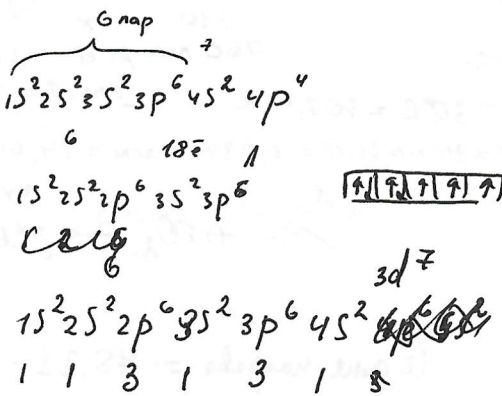 6 пар
7
1s² 2s² 3s² 3p⁶ 4s² 4p⁴
6 18ē 1
1s² 2s² 2p⁶ 3s² 3p⁶
6
3d⁷
1s² 2s² 2p⁶ 3s² 3p⁶ 4s²
1 1 3 1 3 1 5